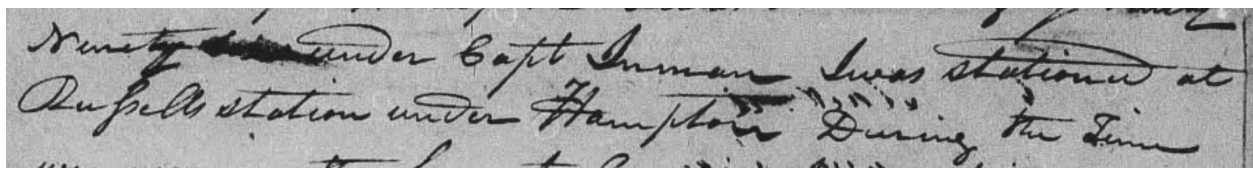 Ninety under Capt Inman I was stationed at
Russells station under Hampton During the Time